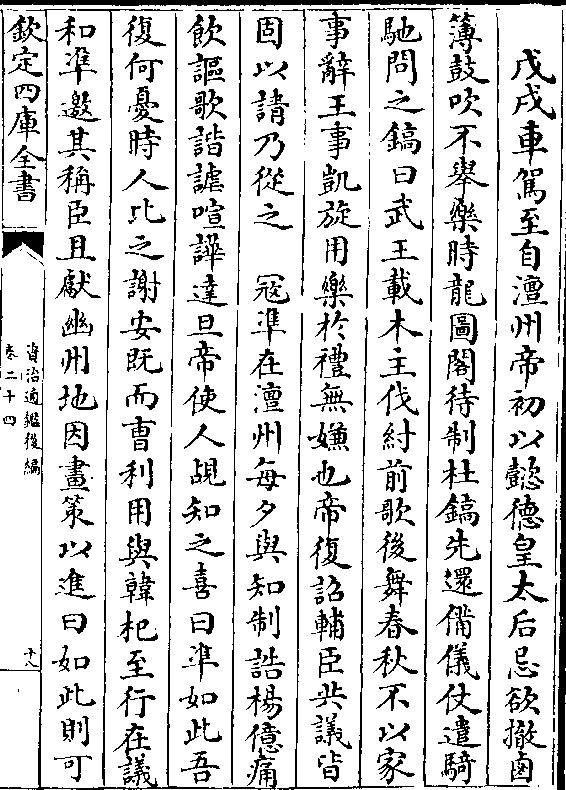 戊戌車駕至自澶州帝初以懿德皇太后忌欲撤鹵
簿鼓吹不舉樂時龍圖閣待制杜鎬先還備儀仗遣騎
馳問之鎬曰武王載木主伐紂前歌後舞春秋不以家
事辭王事凱旋用樂於禮無嫌也帝復詔輔臣共議皆
固以請乃從之 冦準在澶州每夕與知制誥楊億痛
飲謳歌諧謔喧譁達旦帝使人覘知之喜曰準如此吾
復何憂時人比之謝安既而曺利用與韓杞至行在議
和準邀其稱臣且獻幽州地因畫策以進曰如此則可
欽定四庫全書
資治通鑑後編
卷二十四
十八